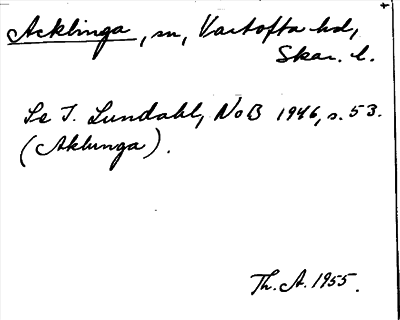 Acklinga, sn, Vartofta hd,
Skar. l.
Se I. Lundahl, NoB 1946, s. 53.
(Aklunga).
Th. A. 1955.